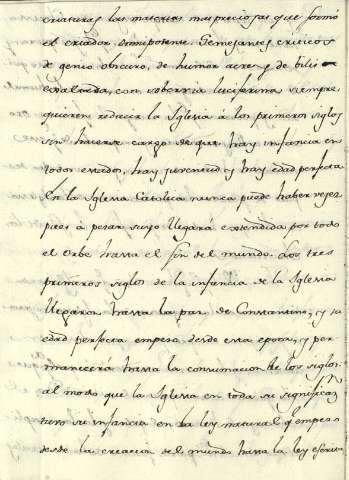 criaturas las materias mas preciosas que formó
el criador omnipotente. Semejantes criticos
de genio obscuro, de humor acre, y de bilis
exaltada, con sobervia luciferina siempre
quieren reducir la Iglesia a los primeros siglos
sin hacerse cargo de que hay infancia en
todos estados, hay juventud, y hay edad perfecta
En la Iglesia Catolica nunca puede haber vejez
pues à pesar suyo llegará extendida por todo
el Orbe hasta el fin del mundo. Los tres
primeros siglos de la infancia de la Iglesia
llegaron hasta la paz de Constantino, y su
edad perfecta empesó desde esta epoca, y per
manecerá hasta la consumacion de los siglos:
al modo que la Iglesia en toda su significazn
tuvo su infancia en la ley natural q empesó
desde la creacion del mundo hasta la ley escrita